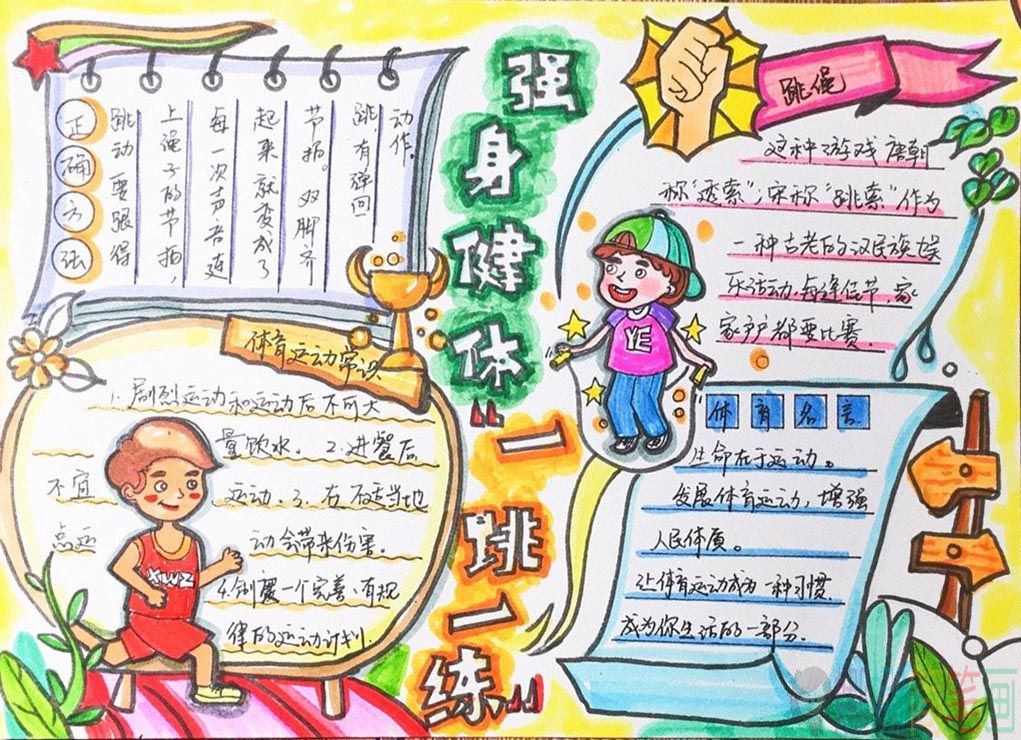 强身健体
“一跳一练”
正确方法
跳动要跟得
上绳子的节拍,
每一次声音连
起来就变成了
节拍。双脚齐
跳,有弹回
动作。
跳绳
这种游戏唐朝
称“透索”;宋称“跳索”作为
一种古老的汉民族娱
乐活动.每逢佳节,家
家户都要比赛.
体育运动常识
1.剧烈运动和运动后不可大
量饮水。2.进餐后
不宜 运动.3.在不适当地
点运 动会带来伤害.
4.制度一个完善、有规
律的运动计划.
体育名言
生命在于运动。
发展体育运动,增强
人民体质。
让体育运动成为一种习惯.
成为你生活的一部分.
YE
XWZ